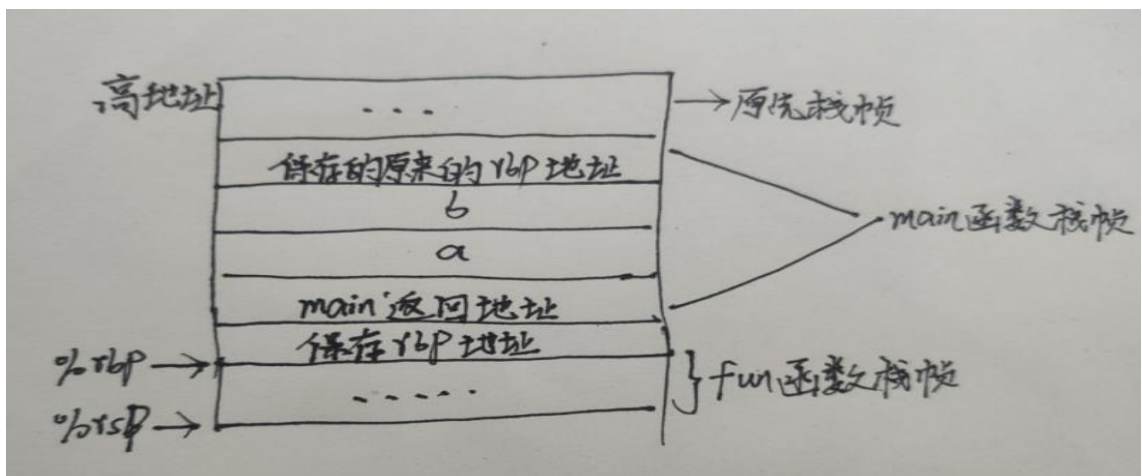 高地址
...
→原先栈帧
保存的原来的rbp地址
b
a
main函数栈帧
main返回地址
保存rbp地址
%rbp→
.....
fun函数栈帧
%rsp→